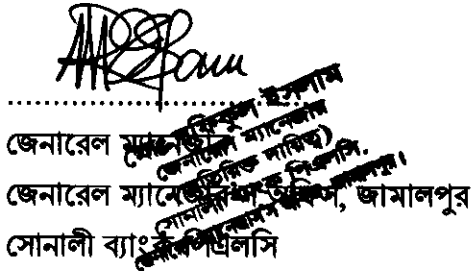 জেনারেল ম্যানেজার
জেনারেল ম্যানেজার্স অফিস, জামালপুর
সোনালী ব্যাংক পিএলসি
রফিকুল ইসলাম
জেনারেল ম্যানেজার
(অতিরিক্ত দায়িত্ব)
সোনালী ব্যাংক পিএলসি.
জেনারেল ম্যানেজার্স অফিস, জামালপুর।